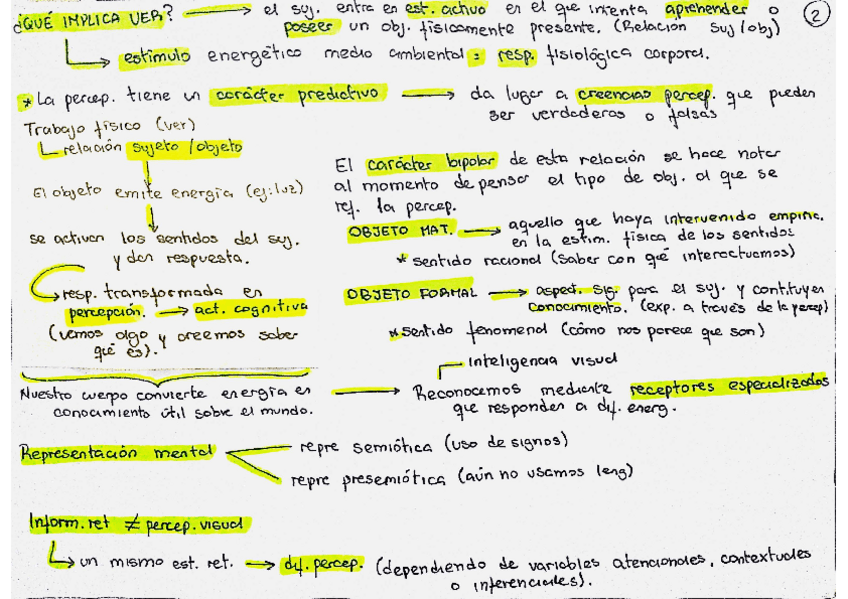 ¿QUÉ IMPLICA VER? → el suj. entra en est. activo en el que intenta aprehender o
poseer un obj. físicamente presente. (Relación suj/obj)
2
estímulo energético medio ambiental = resp. fisiológica corporal.
* La percep. tiene un carácter predictivo → da lugar a creencias percep. que pueden
ser verdaderas o falsas
Trabajo físico (ver)
relación sujeto/objeto
El objeto emite energía (ej: luz)
se activan los sentidos del suj.
y dan respuesta.
resp. transformada en
percepción. → act. cognitiva
(vemos algo y creemos saber
qué es).
El carácter bipolar de esta relación se hace notar
al momento de pensar el tipo de obj. al que se
ref. la percep.
OBJETO MAT. → aquello que haya intervenido empíric.
en la estim. física de los sentidos
* sentido racional (saber con qué interactuamos)
OBJETO FORMAL → aspect. sig. para el suj. y contituyen
conocimiento. (exp. a través de la percep)
* sentido fenomenal (cómo nos parece que son)
inteligencia visual
Nuestro cuerpo convierte energía en
conocimiento útil sobre el mundo.
→ Reconocemos mediante receptores especializados
que responden a dif. energ.
Representación mental
repre semiótica (uso de signos)
repre presemiótica (aún no usamos leng)
Inform. ret ≠ percep. visual
un mismo est. ret. → dif. percep. (dependiendo de variables atencionales, contextuales
o inferenciales).